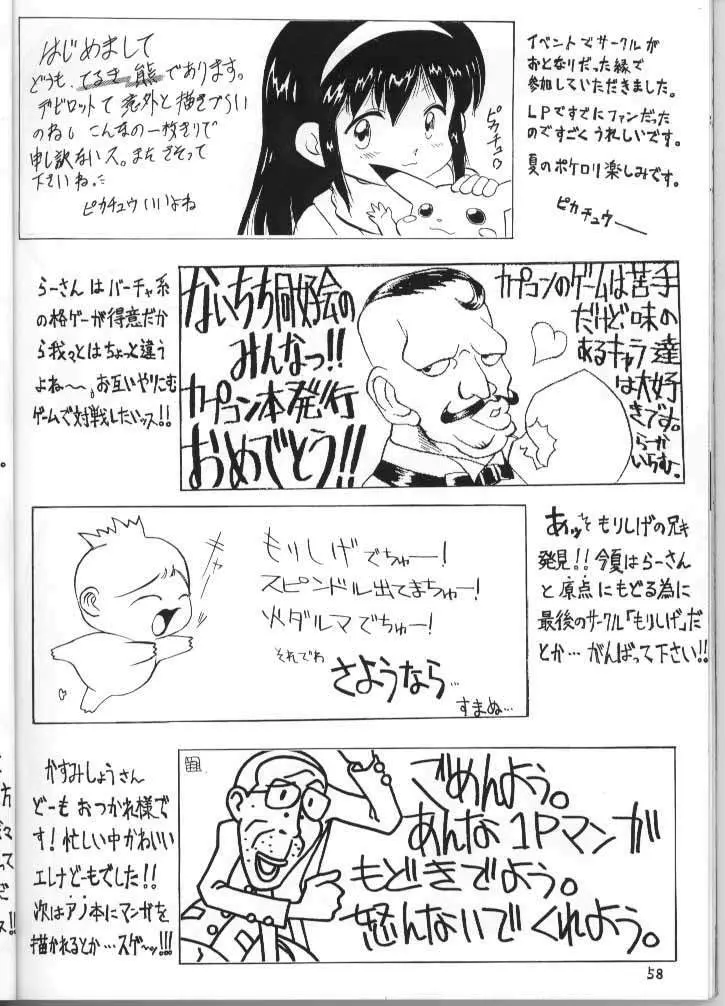 はじめまして
どうも、てるき熊であります。
デビロットて意外と描きづらい
のね。こんなの一枚きりで
申し訳ないス。またさそって
下さいね。
ピカチュウいいよね
ピカチュウ
イベントでサークルが
おとなりだった縁で
参加していただきました。
LPですでにファンだった
のですごくうれしいです。
夏のポケロリ楽しみです。
ピカチュウ――
らーさんはバーチャ系
の格ゲーが得意だか
ら我々とはちょっと違う
よね〜。お互いやりこむ
ゲームで対戦したいッス!!
ないちち同好会の
みんなっ!!
カプコン本発行
おめでとう!!
カプコンのゲームは苦手
だけど味の
あるキャラ達
は大好
きです。
らーか
いらむ。
もりしげでちゅー!
スピンドル出てまちゅー!
火ダルマでちゅー!
それでわ
さようなら…
すまぬ…
あッそもりしげの兄き
発見!!今夏はらーさん
と原点にもどる為に
最後のサークル「もりしげ」だ
とか…がんばって下さい!!
かすみしょうさん
どーもおつかれ様で
す!忙しい中かわいい
エレナどもでした!!
次はアノ本にマンガを
描かれるとか…スゲ〜ッ!!!
ごめんよう。
あんな1Pマンガ
もどきでよう。
怒んないでくれよう。
58